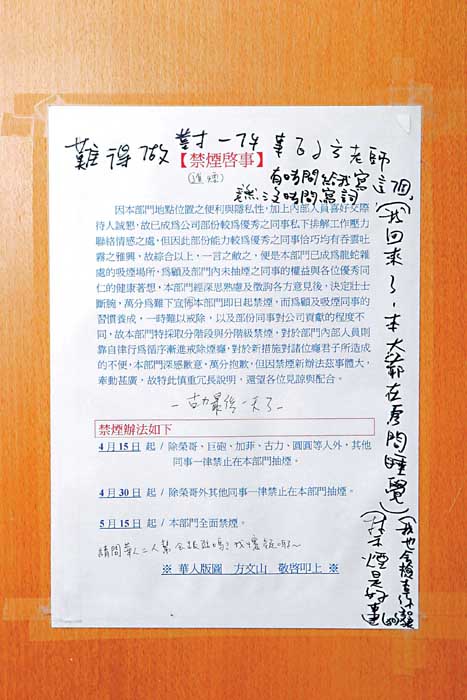 難得做對一件事
【禁煙啓事】
有時間給我寫這個,
沒時間寫詞
因本部門地點位置之便利與隱私性,加上內部人員喜好交際
待人誠懇,故已成為公司部份較為優秀之同事私下排解工作壓力
聯絡情感之處,但因此部份能力較為優秀之同事恰巧均有吞雲吐
霧之雅興,故綜合以上,一言之敝之,便是本部門已成為龍蛇雜
處的吸煙場所,為顧及部門內未抽煙之同事的權益與各位優秀同
仁的健康著想,本部門經深思熟慮及徵詢各方意見後,決定壯士
斷腕,萬分為難下宣佈本部門即日起禁煙,而為顧及吸煙同事的
習慣養成,一時難以戒除,以及部份同事對公司貢獻的程度不
同,故本部門特採取分階段與分階級禁煙,對於部門內部人員則
靠自律行為循序漸進戒除煙癮,對於新措施對諸位癮君子所造成
的不便,本部門深感歉意,萬分抱歉,但因禁煙新辦法茲事體大,
牽動甚廣,故特此慎重冗長說明,還望各位見諒與配合。
古力最後一天了
禁煙辦法如下
4 月 15 日 起 / 除榮哥,巨砲、加菲、古力、圓圓等人外,其他
同事一律禁止在本部門抽煙。
4 月 30 日 起 / 除榮哥外其他同事一律禁止在本部門抽煙。
5 月 15 日 起 / 本部門全面禁煙。
請問華人二人幫
※ 華人版圖 方文山 敬啓叩上 ※
(我回來了,本大爺在房間睡覺)
禁煙是好事